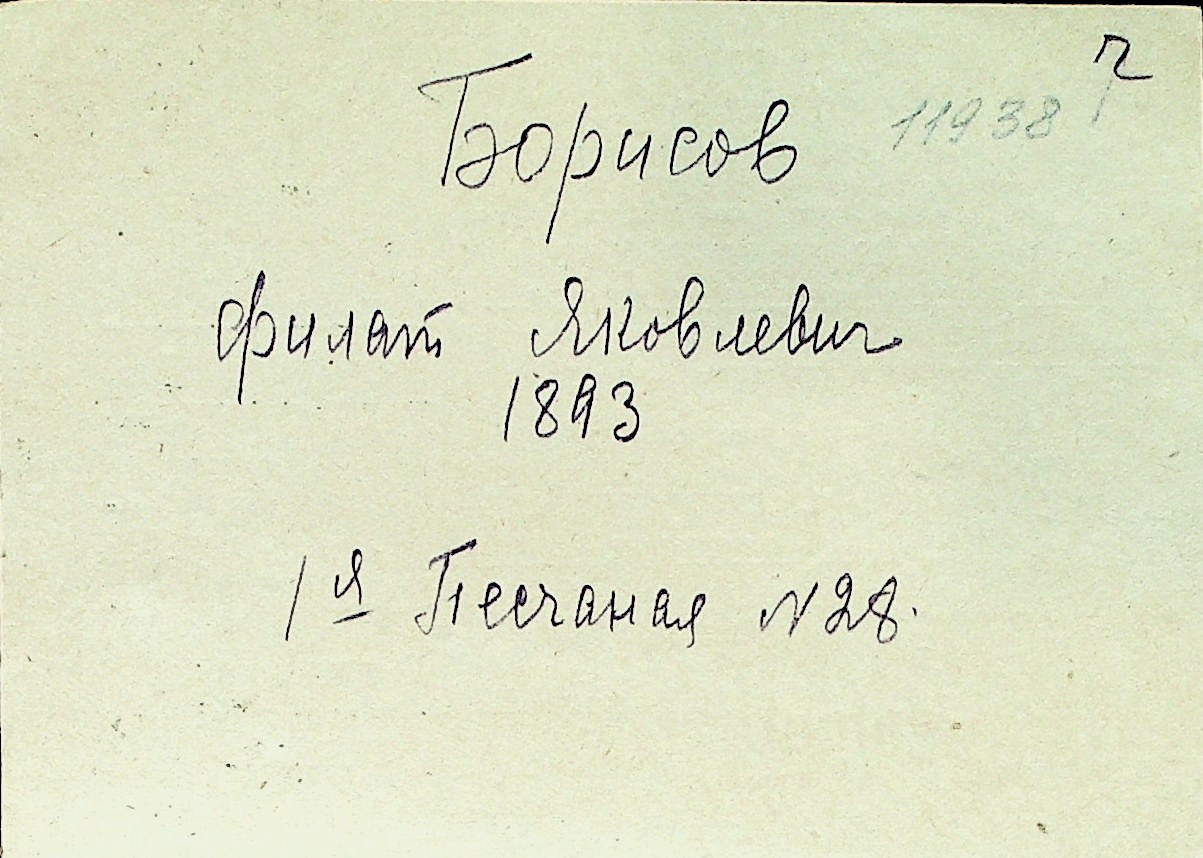 Борисов 11938
Филат Яковлевич
1893
1я Песчаная N28.